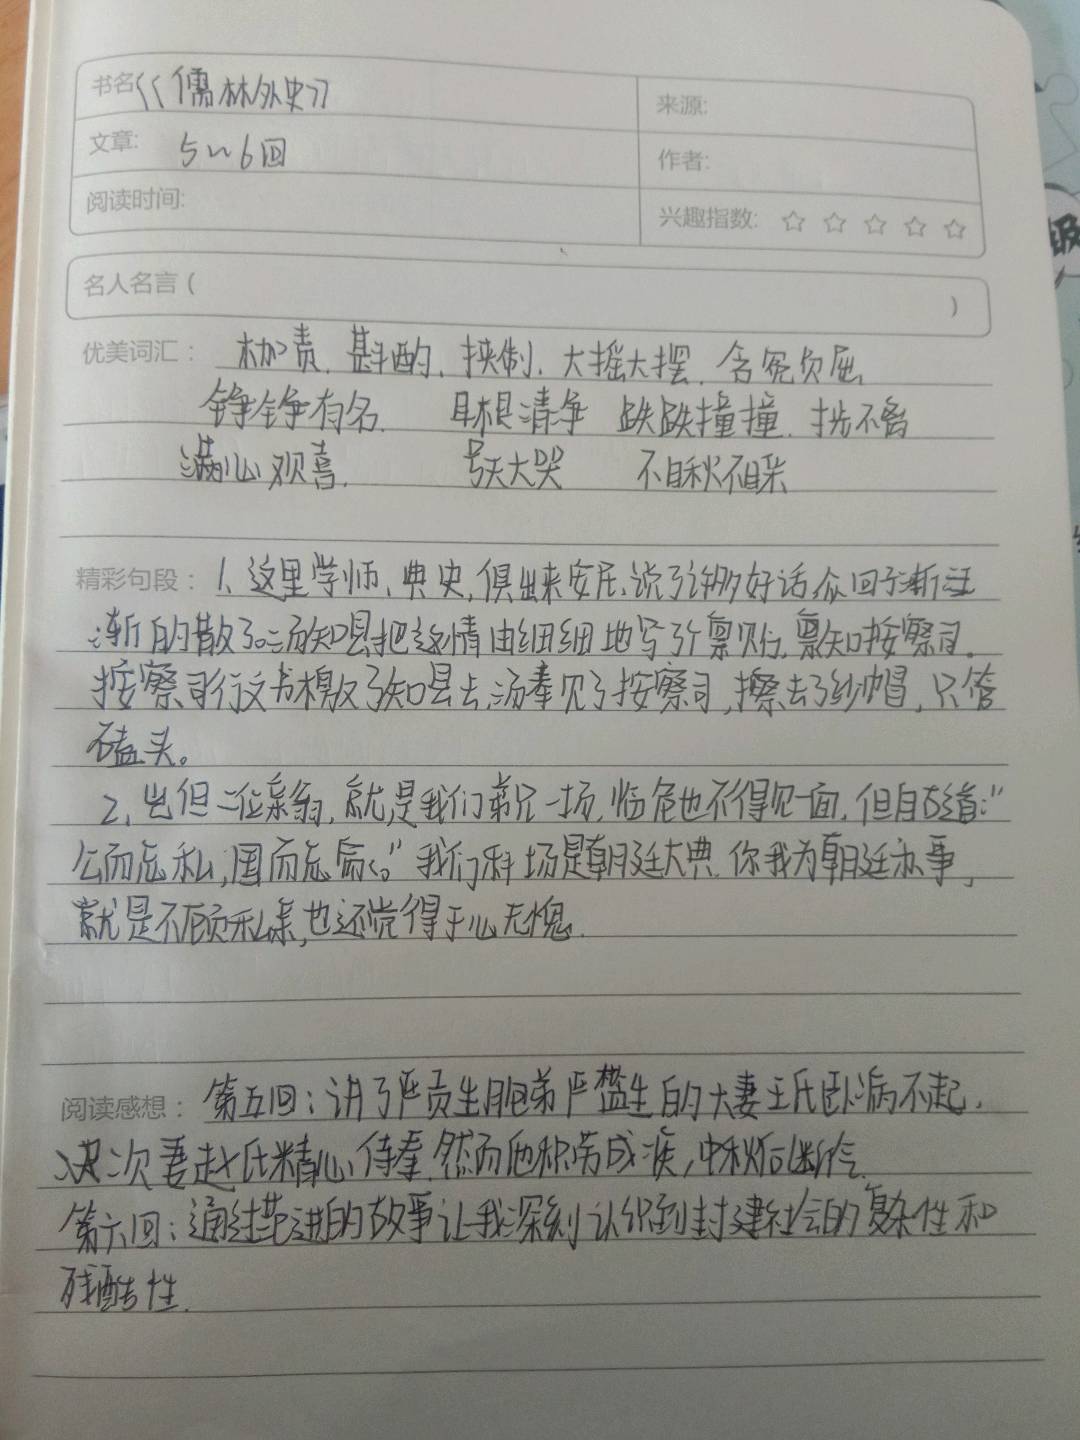 书名《儒林外史》 来源:
文章: 5~6回 作者:
阅读时间: 兴趣指数: ☆ ☆ ☆ ☆ ☆
名人名言 ( )
优美词汇： 枷责、斟酌、挟制、大摇大摆、含冤负屈
铮铮有名、 耳根清争 跌跌撞撞、 拢不
满心欢喜、 号天大哭 不瞅不睬
精彩句段：1、这里学师、典史,俱出来安民、说了许多好话,众回子渐
渐的散了。汤知县把这情由细细地写了个禀帖、禀知按察司。
按察司行文书檄了知县去,汤奉见了按察司,擦去了纱帽,只管
磕头。
2、 但二位亲翁,就是我们弟兄一场,临危也不得见一面,但自古道:“
公而忘私,国而忘家。”我们科场是朝廷大典,你我为朝廷办事,
就是不顾私亲,也还觉得于心无愧.
阅读感想：第五回：讲了严贡生胞弟严监生的大妻王氏卧病不起,
次妻赵氏精心侍奉,然而他积劳成疾,中秋后断气.
第六回：通过范进的故事让我深刻认识到封建社会的复杂性和
残酷性.